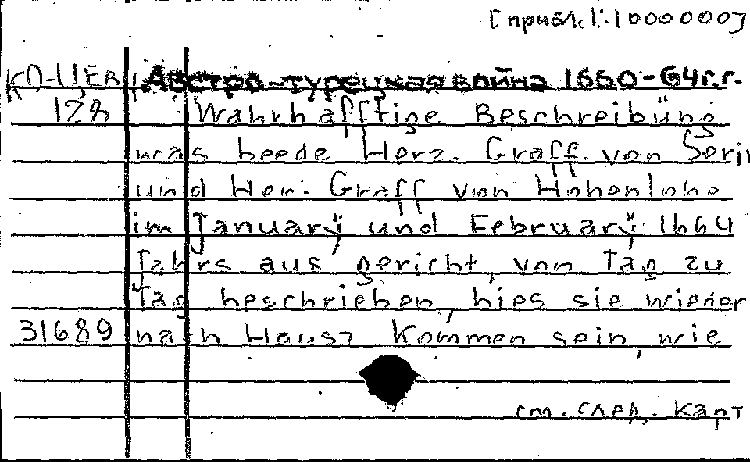 [прибл.1:1000000]
КО-ЦЕВ Австро-турецкая война 1660-64г.г.
128 Wahrhafftige Beschreibung
was beede Herz. Graff von Serin
und Her. Graff von Hohenlohe
im Januarÿ und Februarÿ 1664
Jahrs aus gericht, von Tag zu
Tag beschrieben, bies sie wieder
31689 nach Hausz kommen sein, wie
см. след. карт